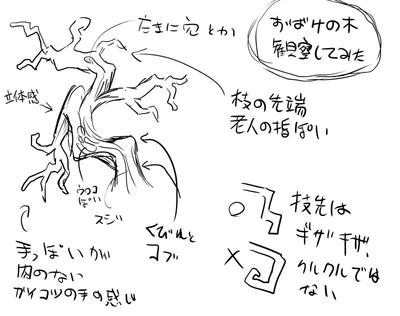 おばけの木
観察してみた
たまに穴とか
立体感
枝の先端
老人の指ぽい
ウロコ
ぽい
スジ
くびれと
コブ
手っぽいが
肉のない
ガイコツの手の感じ
枝先は
ギザギザ、
クルクルでは
ない